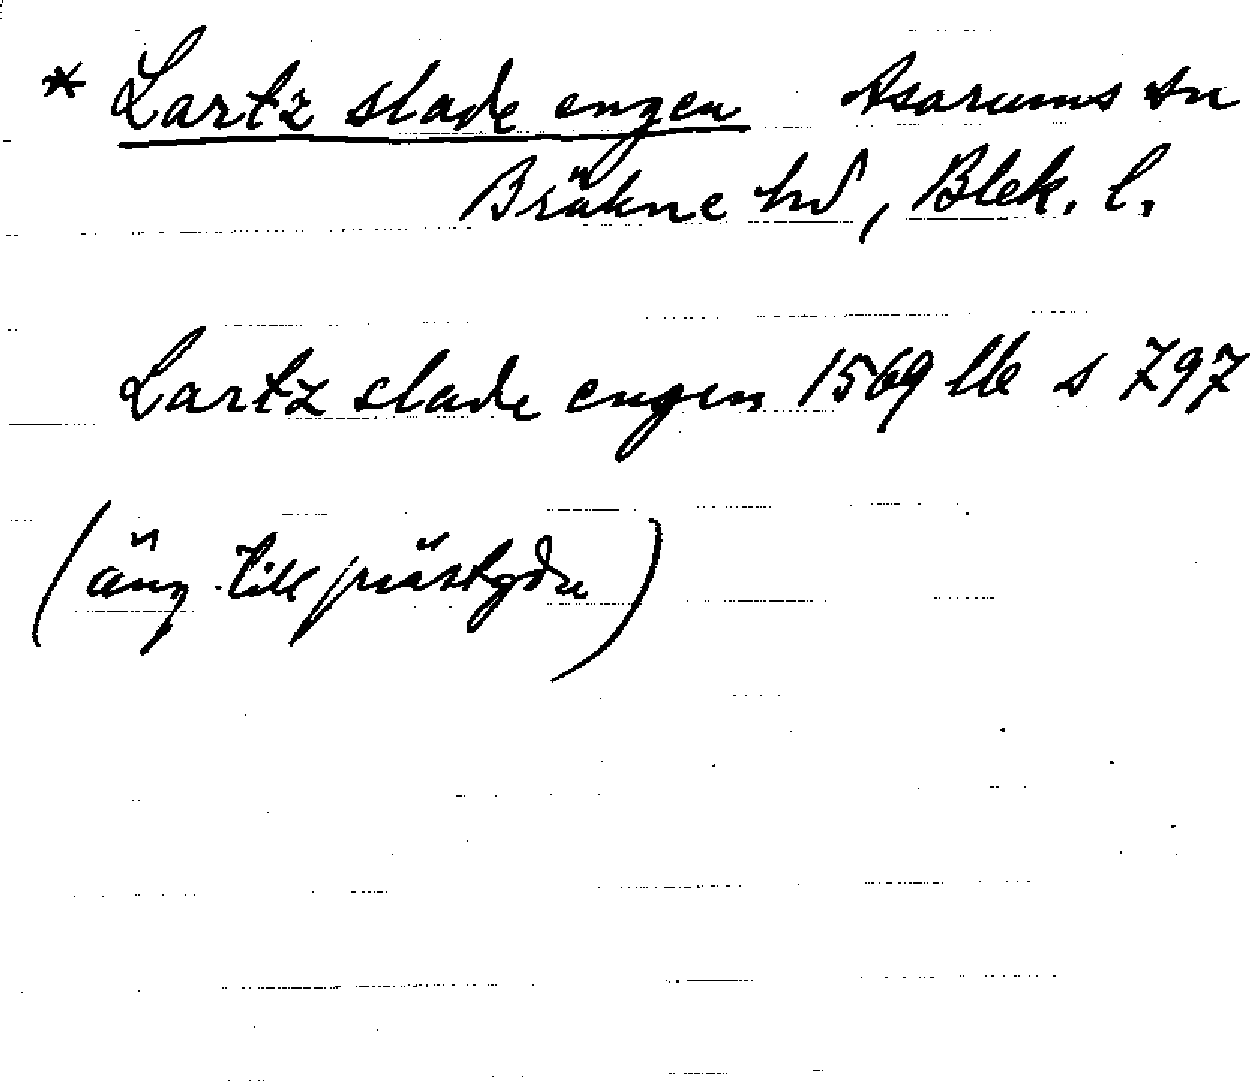 * Lartz slade engen Asarums sn
Bräkne hd, Blek. l.
Lartz slade engen 1569 lb s 797
(äng till prästgdn)